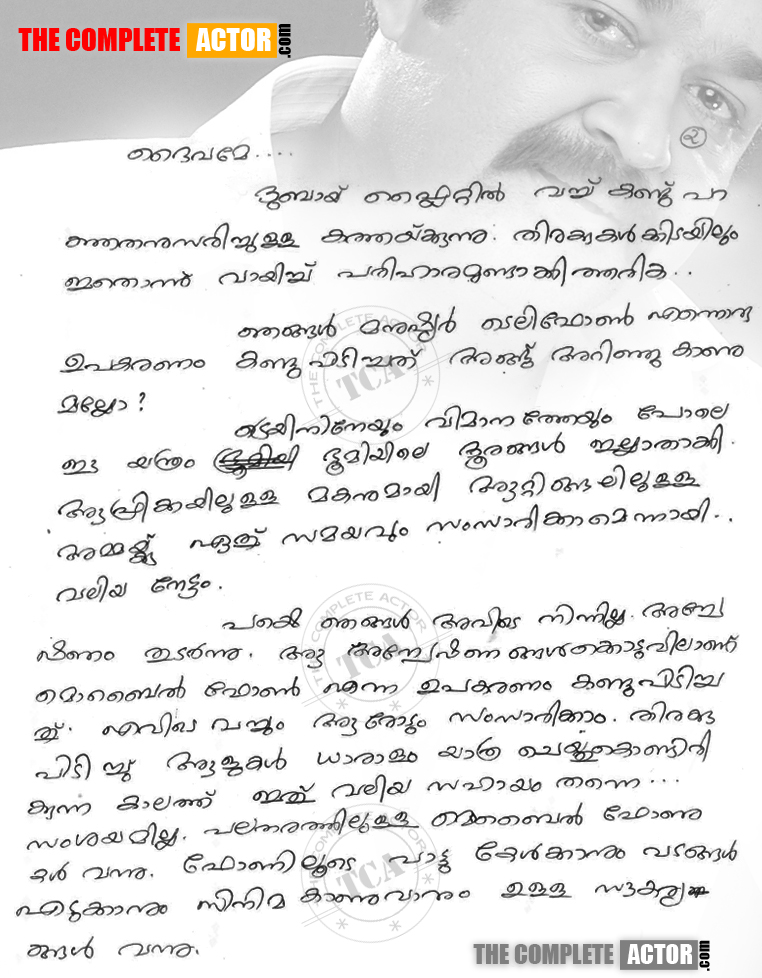 THE COMPLETE ACTOR .com
൨
ദൈവമേ....
ദുബായ് ഫ്ലൈറ്റിൽ വച്ച് കണ്ടു പറ
ഞ്ഞതനുസരിച്ചുള്ള കത്തയ്ക്കുന്നു. തിരക്കുകൾക്കിടയിലും
ഇതൊന്ന് വായിച്ച് പരിഹാരമുണ്ടാക്കിത്തരിക..
ഞങ്ങൾ മനുഷ്യർ ടെലിഫോൺ എന്നൊരു
ഉപകരണം കണ്ടുപിടിച്ചത് അങ്ങ് അറിഞ്ഞു കാണു
മല്ലോ?
ട്രെയിനിനേയും വിമാനത്തേയും പോലെ
ഈ യന്ത്രം ഭൂമിയിലെ ദൂരങ്ങൾ ഇല്ലാതാക്കി.
ആഫ്രിക്കയിലുള്ള മകനുമായി ആറ്റിങ്ങലിലുള്ള
അമ്മയ്ക്ക് ഏത് സമയവും സംസാരിക്കാമെന്നായി..
വലിയ നേട്ടം.
പക്ഷെ ഞങ്ങൾ അവിടെ നിന്നില്ല. അന്വേ
ഷണം തുടർന്നു. ആ അന്വേഷണങ്ങൾക്കൊടുവിലാണ്
മൊബൈൽ ഫോൺ എന്ന ഉപകരണം കണ്ടുപിടിച്ച
ത്. എവിടെ വച്ചും ആരോടും സംസാരിക്കാം. തിരക്കു
പിടിച്ച് ആളുകൾ ധാരാളം യാത്ര ചെയ്തുകൊണ്ടിരി
ക്കുന്ന കാലത്ത് ഇത് വലിയ സഹായം തന്നെ...
സംശയമില്ല. പലതരത്തിലുള്ള മൊബൈൽ ഫോണു
കൾ വന്നു. ഫോണിലൂടെ പാട്ടു കേൾക്കാനും പടങ്ങൾ
എടുക്കാനും സിനിമ കാണുവാനും ഉള്ള സൗകര്യ
ങ്ങൾ വന്നു.
THE COMPLETE ACTOR TCA
THE COMPLETE ACTOR TCA
THE COMPLETE ACTOR TCA
THE COMPLETE ACTOR .com